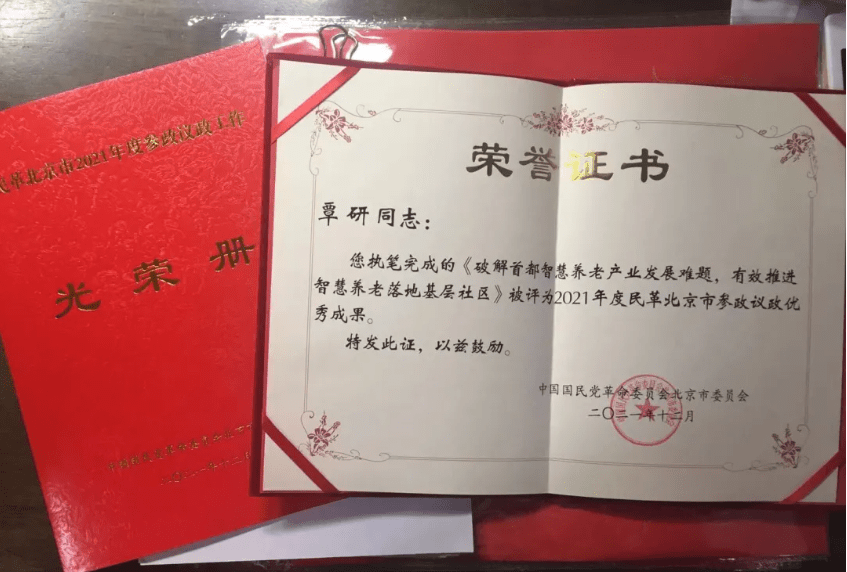 民革北京市2021年度参政议政工作
光荣册
荣誉证书
覃研同志：
您执笔完成的《破解首都智慧养老产业发展难题，有效推进
智慧养老落地基层社区》被评为2021年度民革北京市参政议政优
秀成果。
特发此证，以兹鼓励。
中国国民党革命委员会北京市委员会
二〇二一年十二月